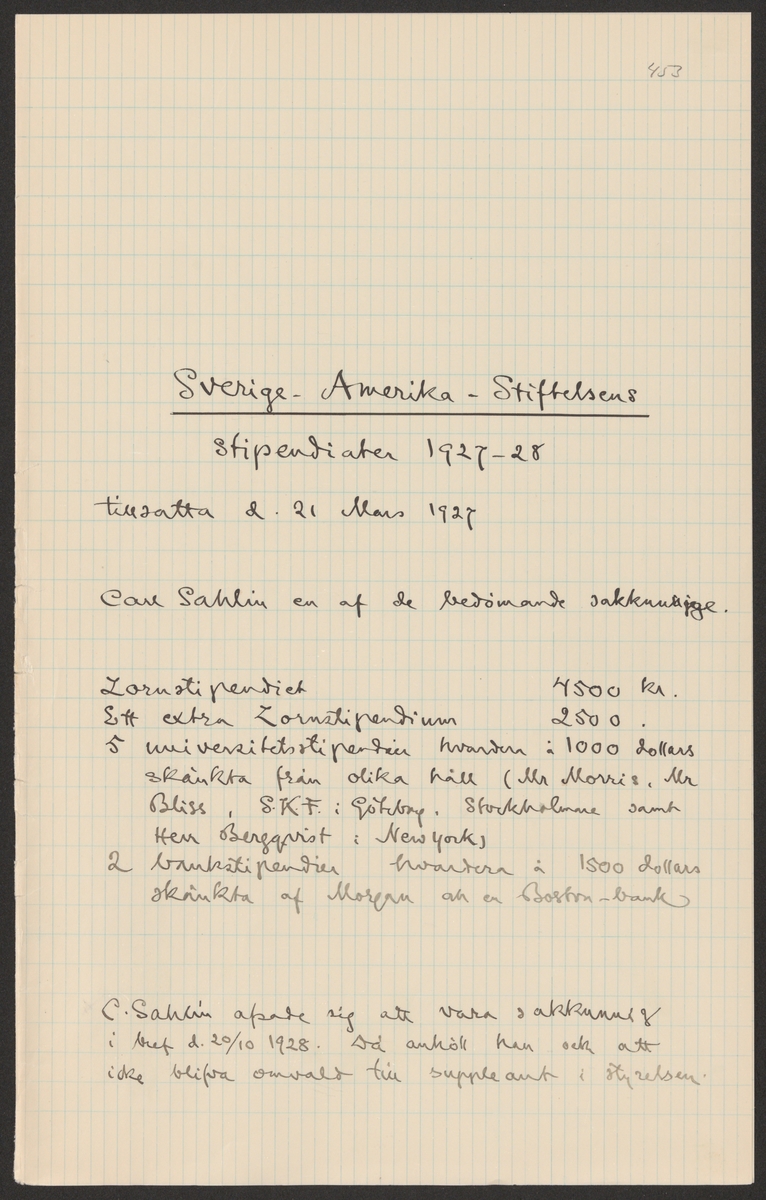 453
Sverige-Amerika-Stiftelsens
Stipendiater 1927-28
tillsatta d. 21 Mars 1927
Carl Sahlin en af de bedömande sakkunnige.
Zornstipendiet 4500 kr.
Ett extra Zornstipendium 2500 .
5 universitetsstipendier hvardera à 1000 dollars
skänkta från olika håll (Mr Morris, Mr
Bliss, S.K.F. i Göteborg, Stockholmare samt
Herr Bergqvist i New York)
2 bankstipendier hvardera à 1500 dollars
skänkta af Morgan och en Boston-bank
C. Sahlin afsade sig att vara sakkunnig
i bref d. 20/10 1928. Då anhöll han ock att
icke blifva omvald till suppleant i styrelsen.